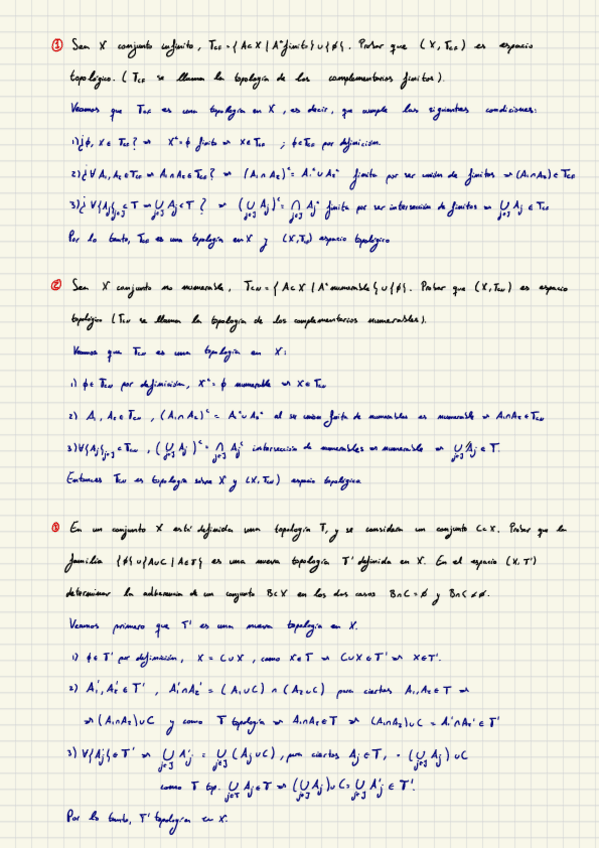 ① Sea X conjunto infinito, T_CF = { A⊂X | Aᶜ finito } ∪ {∅}. Probar que (X, T_CF) es espacio
topológico. (T_CF se llama la topología de los complementarios finitos).
Veamos que T_CF es una topología en X, es decir, que cumple las siguientes condiciones:
1) ¿∅, X ∈ T_CF? ⇝ Xᶜ = ∅ finito ⇝ X ∈ T_CF ; ∅ ∈ T_CF por definición.
2) ¿∀ A₁, A₂ ∈ T_CF ⇝ A₁∩A₂ ∈ T_CF? ⇝ (A₁∩A₂)ᶜ = A₁ᶜ ∪ A₂ᶜ finito por ser unión de finitos ⇝ (A₁∩A₂) ∈ T_CF
3) ¿∀ {Aj}j∈J ⊂ T ⇝ ⋃j∈J Aj ∈ T? ⇝ (⋃j∈J Aj)ᶜ = ⋂j∈J Ajᶜ finito por ser intersección de finitos ⇝ ⋃j∈J Aj ∈ T_CF
Por lo tanto, T_CF es una topología en X y (X, T_CF) espacio topológico
② Sea X conjunto no numerable, T_CN = { A⊂X | Aᶜ numerable } ∪ {∅}. Probar que (X, T_CN) es espacio
topológico (T_CN se llama la topología de los complementarios numerables).
Veamos que T_CN es una topología en X:
1) ∅ ∈ T_CN por definición, Xᶜ = ∅ numerable ⇝ X ∈ T_CN
2) A₁, A₂ ∈ T_CN, (A₁∩A₂)ᶜ = A₁ᶜ ∪ A₂ᶜ al ser unión finita de numerables es numerable ⇝ A₁∩A₂ ∈ T_CN
3) ∀ {Aj}j∈J ⊂ T_CN, (⋃j∈J Aj)ᶜ = ⋂j∈J Ajᶜ intersección de numerables es numerable ⇝ ⋃j∈J Aj ∈ T.
Entonces T_CN es topología sobre X y (X, T_CN) espacio topológico
③ En un conjunto X está definida una topología T, y se considera un conjunto C⊂X. Probar que la
familia {∅} ∪ {A∪C | A∈T} es una nueva topología T' definida en X. En el espacio (X, T')
determinar la adherencia de un conjunto B⊂X en los dos casos B∩C = ∅ y B∩C ≠ ∅.
Veamos primero que T' es una nueva topología en X.
1) ∅ ∈ T' por definición, X = C∪X, como X∈T ⇝ C∪X ∈ T' ⇝ X∈T'.
2) A₁', A₂' ∈ T', A₁'∩A₂' = (A₁∪C) ∩ (A₂∪C) para ciertos A₁, A₂ ∈ T ⇝
⇝ (A₁∩A₂)∪C y como T topología ⇝ A₁∩A₂ ∈ T ⇝ (A₁∩A₂)∪C = A₁'∩A₂' ∈ T'
3) ∀{Aj'} ∈ T' ⇝ ⋃j∈J A'j = ⋃j∈J (Aj∪C), para ciertos Aj ∈ T, = (⋃j∈J Aj) ∪C
como T top. ⋃j∈J Aj ∈ T ⇝ (⋃j∈J Aj)∪C = ⋃j∈J A'j ∈ T'.
Por lo tanto, T' topología en X.